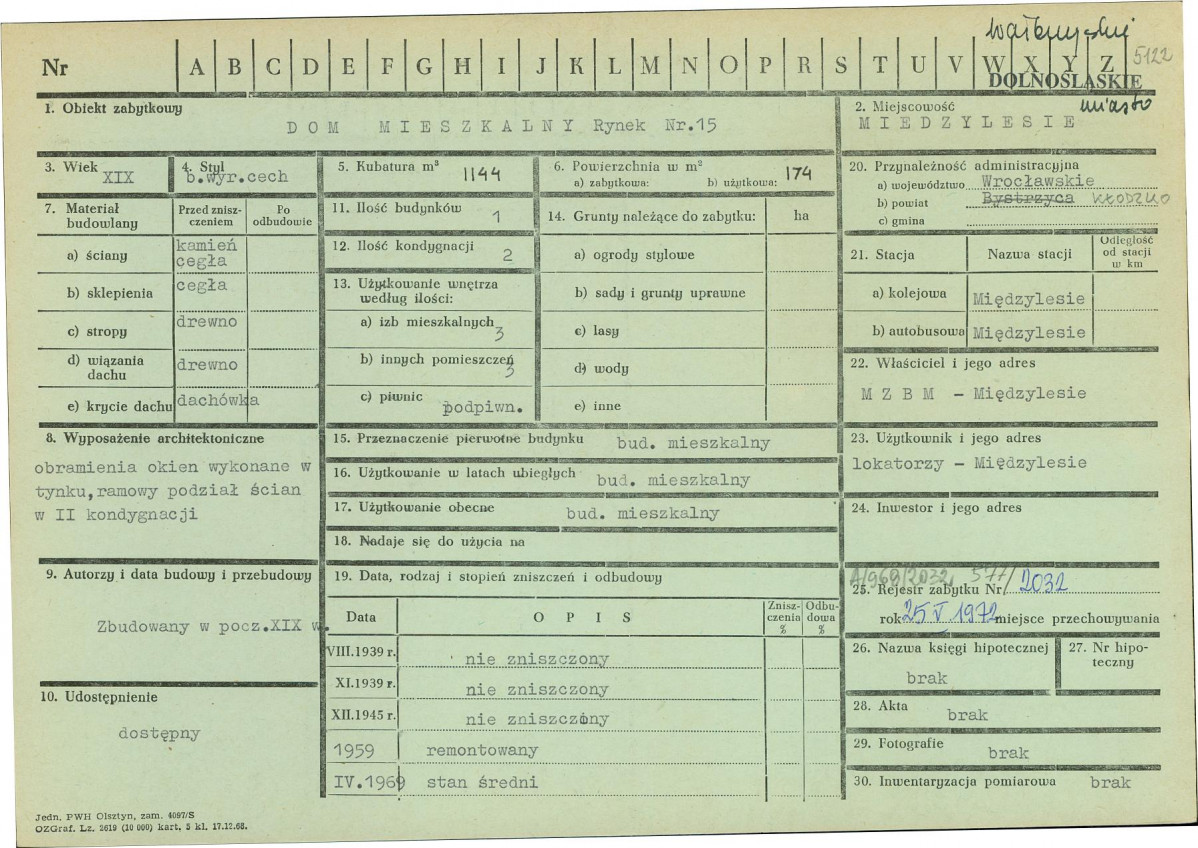 wałbrzyskie
Nr A B C D E F G H I J K L M N O P R S T U V W X Y Z 5122
DOLNOŚLĄSKIE
1. Obiekt zabytkowy
DOM MIESZKALNY Rynek Nr.15
2. Miejscowość miasto
MIEDZYLESIE
3. Wiek
XIX
4. Styl
b.wyr.cech
5. Kubatura m³ 1144
6. Powierzchnia w m²
a) zabytkowa: b) użytkowa: 174
7. Materiał budowlany
Przed zniszczeniem
Po odbudowie
a) ściany kamień cegła
b) sklepienia cegła
c) stropy drewno
d) wiązania dachu drewno
e) krycie dachu dachówka
8. Wyposażenie architektoniczne
obramienia okien wykonane w
tynku,ramowy podział ścian
w II kondygnacji
9. Autorzy i data budowy i przebudowy
Zbudowany w pocz.XIX w.
10. Udostępnienie
dostępny
11. Ilość budynków 1
12. Ilość kondygnacji 2
13. Użytkowanie wnętrza
według ilości:
a) izb mieszkalnych 3
b) innych pomieszczeń 3
c) piwnic podpiwn.
14. Grunty należące do zabytku: ha
a) ogrody stylowe
b) sady i grunty uprawne
c) lasy
d) wody
e) inne
15. Przeznaczenie pierwotne budynku bud. mieszkalny
16. Użytkowanie w latach ubiegłych bud. mieszkalny
17. Użytkowanie obecne bud. mieszkalny
18. Nadaje się do użycia na
19. Data, rodzaj i stopień zniszczeń i odbudowy
Data OPIS Zniszczenia % Odbudowa %
VIII.1939 r. nie zniszczony
XI.1939 r. nie zniszczony
XII.1945 r. nie zniszczony
1959 remontowany
IV.1969 stan średni
20. Przynależność administracyjna
a) województwo Wrocławskie
b) powiat Bystrzyca KŁODZKO
c) gmina
21. Stacja Nazwa stacji Odległość od stacji w km
a) kolejowa Międzylesie
b) autobusowa Międzylesie
22. Właściciel i jego adres
MZBM - Międzylesie
23. Użytkownik i jego adres
lokatorzy - Międzylesie
24. Inwestor i jego adres
A/969/2032, 577/
25. Rejestr zabytku Nr 2032
rok 25 V 1972 miejsce przechowywania
26. Nazwa księgi hipotecznej
brak
27. Nr hipoteczny
28. Akta
brak
29. Fotografie
brak
30. Inwentaryzacja pomiarowa brak
Jedn. PWH Olsztyn, zam. 4097/S
OZGraf. Lz. 2619 (10 000) kart. 5 kl. 17.12.68.